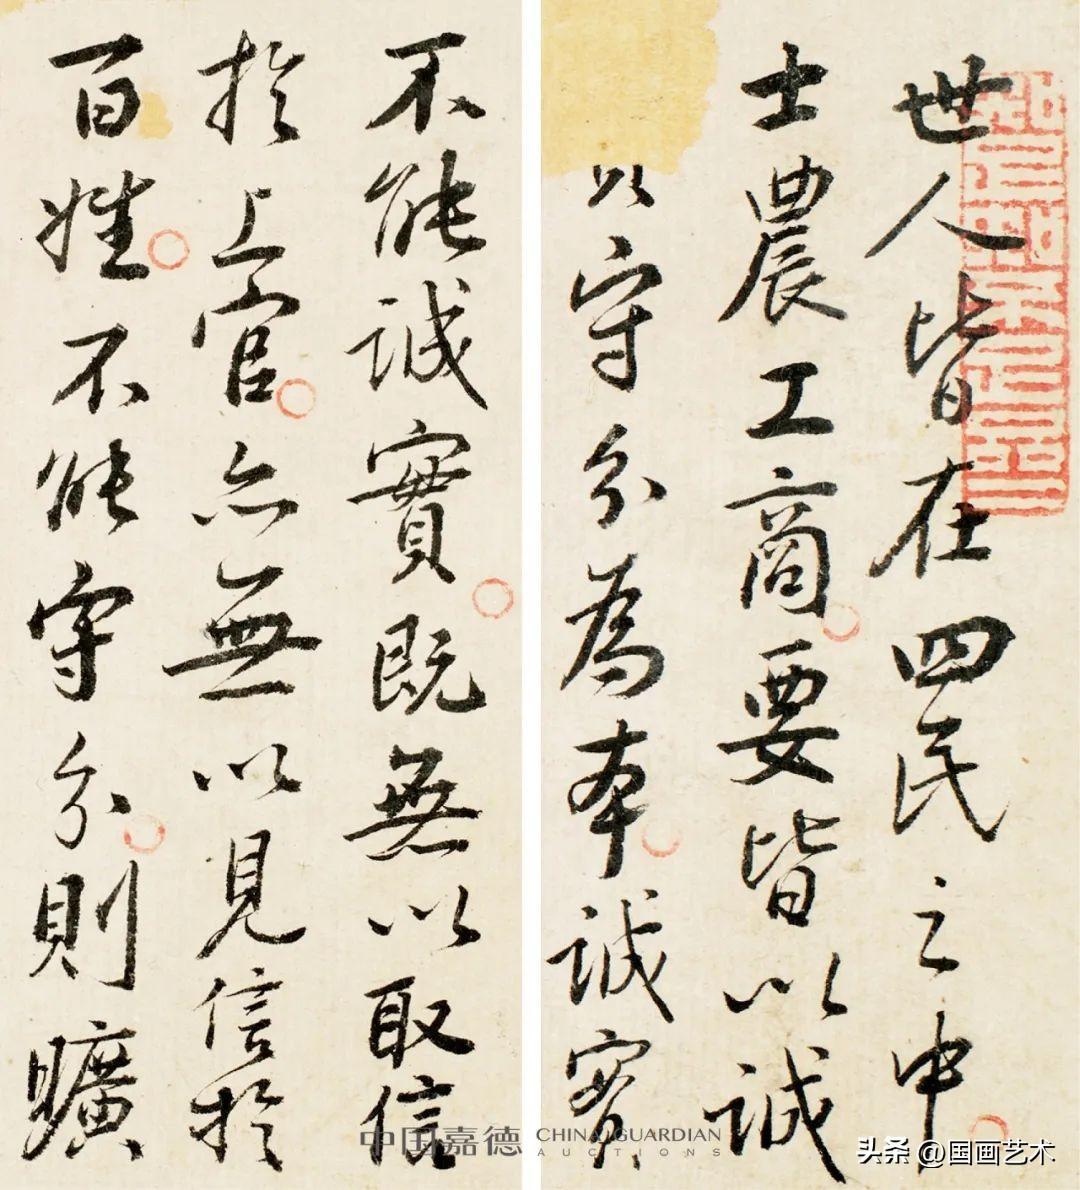 世人皆在四民之中
士農工商要皆以誠
以守分為本誠實
不能誠實既無以取信
於上官亦無以見信於
百姓不能守分則曠
中国嘉德 CHINA GUARDIAN
AUCTIONS
头条 @国画艺术